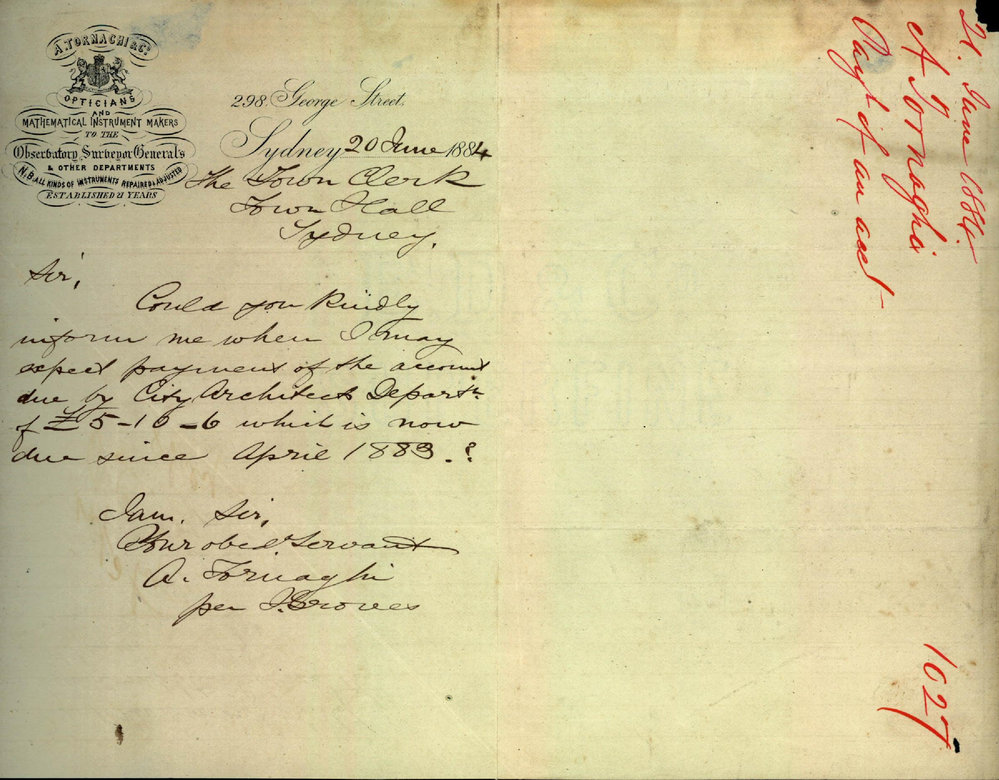 A. TORNAGHI & Co.
OPTICIANS
AND
MATHEMATICAL INSTRUMENT MAKERS
TO THE
Observatory, Surveyor General's
& OTHER DEPARTMENTS
N.B. ALL KINDS OF INSTRUMENTS REPAIRED & ADJUSTED
ESTABLISHED 21 YEARS
298, George Street,
Sydney 20 June 1884
The Town Clerk
Town Hall
Sydney.
Sir,
Could you kindly
inform me when I may
expect payment of the account
due by City Architects Departt.
of £5-10-6 which is now
due since April 1883.?
I am. Sir,
Your obed. Servant
A. Tornaghi
per
21. June 1884.
A Tornaghi
Payt of an acct
1027